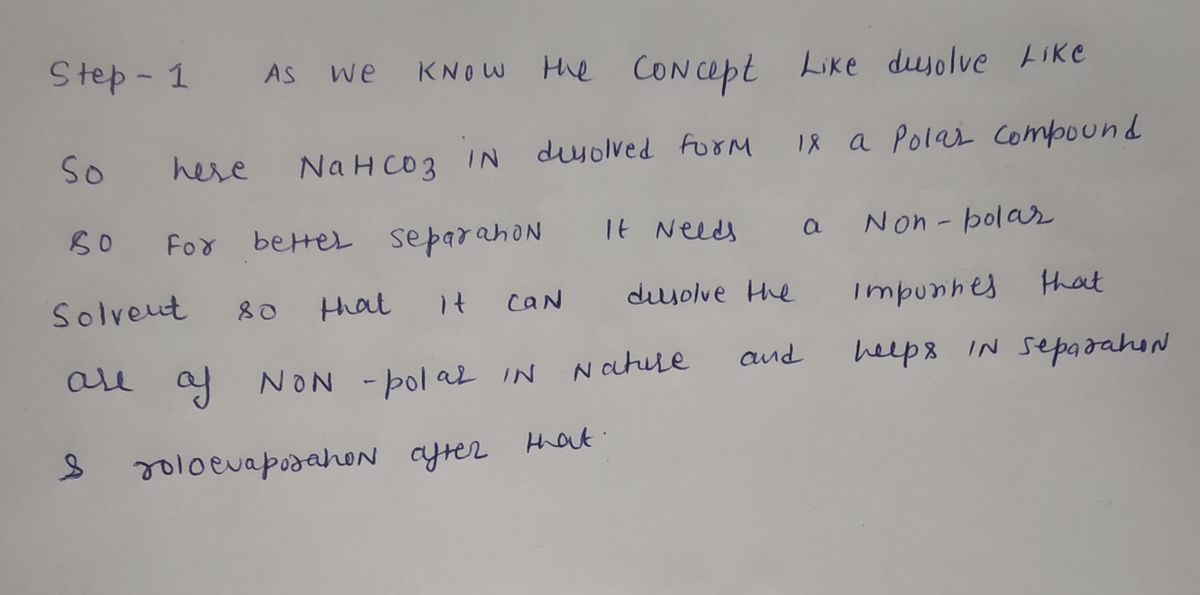 Step - 1 As we know the concept Like dissolve Like
So here NaHCO3 in dissolved form is a Polar compound
so For better separation It Needs a Non - polar
Solvent so that it can dissolve the impurities that
are of NON - polar in Nature and helps in separation
& rotoevaporation after that.